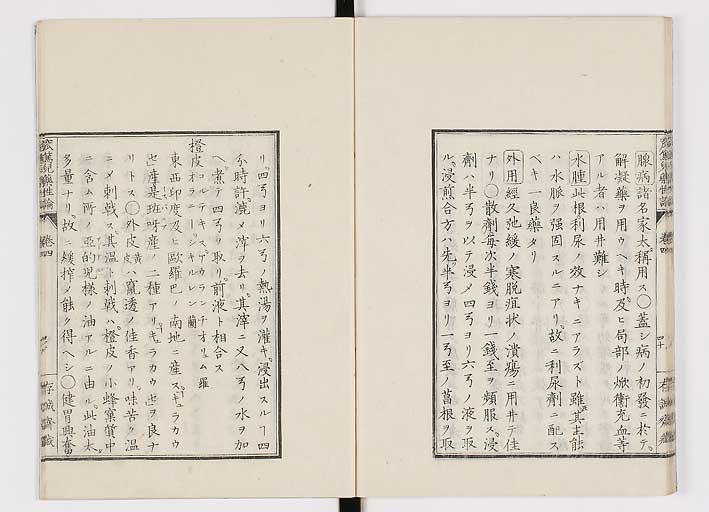 腺病諸名家太稱用ス○蓋シ病ノ初發ニ於テ
解凝藥ヲ用ウヘキ時及ヒ局部ノ焮衝充血等
アル者ハ用井難シ
水腫此根利尿ノ效ナキニアラズト雖其主能
ハ水脈ヲ强固スルニアリ故ニ利尿劑ニ配ス
ベキ一良藥タリ
外用經久弛緩ノ寒脱症状ノ潰瘍ニ用井テ佳
ナリ○散劑每次半錢ヨリ一錢至ヲ頻服ス浸
劑ハ半弓ヲ以テ浸メ四弓ヨリ六弓ノ液ヲ取
ル浸煎合方ハ先半弓ヨリ一弓至ノ菖根ヲ取
リ四弓ヨリ六弓ノ熱湯ヲ灌キ浸出スルヿ四
分時許漉メ滓ヲ去リ其滓ニ又八弓ノ水ヲ加
ヘ煮テ四弓ヲ取リ前液ト相合ス
橙皮コルテキスアウランチオリュム羅
オラニーシキルレン蘭
東西印度及ヒ歐羅巴ノ南地ニ産ス
産是班呀産ノ二種アリキュラカウヲ良ナ
リトス○外皮黃竄透ノ佳香アリ味苦ク溫
ニメ刺戟ス其溫ト刺戟ハ橙皮ノ小蜂窠質中
ニ含ム所ノ亞的兒樣ノ油アルニ由ル此油太
多量ナリ故ニ緩搾メ能ク得ヘシ○健胃興奮
卷四
四十